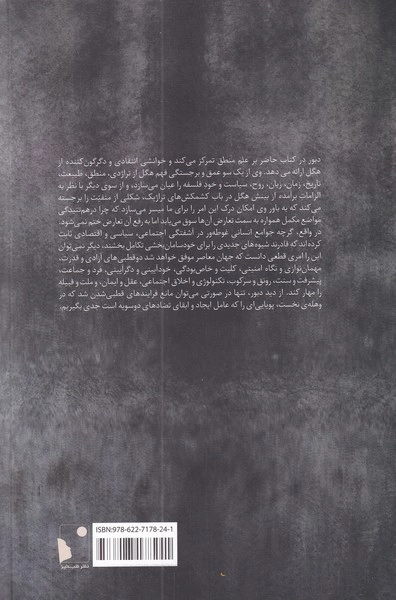 دبور در کتاب حاضر بر علم منطق تمرکز می‌کند و خوانشی انتقادی و دگرگون‌کننده از
هگل ارائه می دهد. وی از یک سو عمق و برجستگی فهم هگل از تراژدی، منطق، طبیعت،
تاریخ، زمان، زبان، روح، سیاست و خود فلسفه را عیان می‌سازد، و از سوی دیگر با نظر به
الزامات برآمده از بینش هگل در باب کشمکش‌های تراژیک، شکلی از منفیّت را برجسته
می‌کند که به باور وی امکان درک این امر را برای ما میسر می‌سازد که چرا درهم‌تنیدگی
مواضع مکمل همواره به سمت تعارض آن‌ها سوق می‌یابد اما به رفع آن تعارض ختم نمی‌شود.
در واقع، گرچه جوامع انسانی غوطه‌ور در آشفتگی اجتماعی، سیاسی و اقتصادی ثابت
کرده‌اند که قادرند شیوه‌های جدیدی را برای خودسامان‌بخشی تکامل بخشند، دیگر نمی‌توان
این را امری قطعی دانست که جهان معاصر موفق خواهد شد دوقطبی‌های آزادی و قدرت،
مهمان‌نوازی و نگاه امنیتی، کلیت و خاص‌بودگی، خودآیینی و دگرآیینی، فرد و جماعت،
پیشرفت و سنت، رونق و سرکوب، تکنولوژی و اخلاق اجتماعی، عقل و ایمان، و ملت و قبیله
را مهار کند. از دید دبور، تنها در صورتی می‌توان مانع فرایندهای قطبی‌شدن شد که در
وهله‌ی نخست، پویایی‌ای را که عامل ایجاد و ابقای تضادهای دوسویه است جدی بگیریم.
ISBN:978-622-7178-24-1